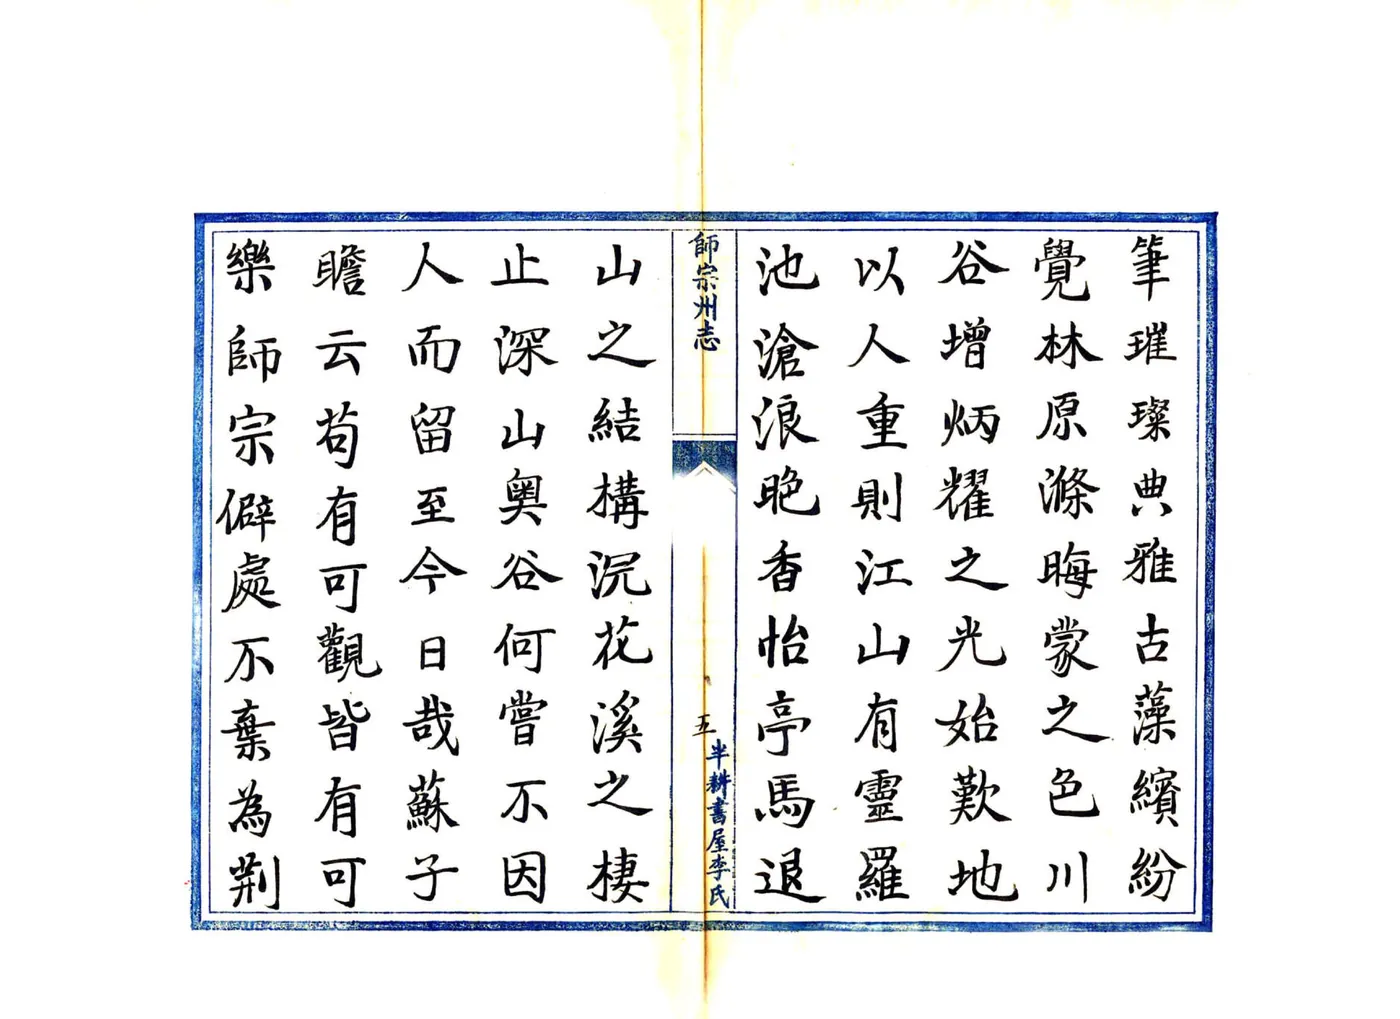 筆璀璨典雅古藻繽紛
覺林原滌晦蒙之色川
谷增炳耀之光始歎地
以人重則江山有靈羅
池滄浪晚香怡亭馬退
師宗州志
五
半耕書屋李氏
山之結構浣花溪之棲
止深山奧谷何嘗不因
人而留至今日哉蘇子
瞻云苟有可觀皆有可
樂師宗僻處不棄為荆